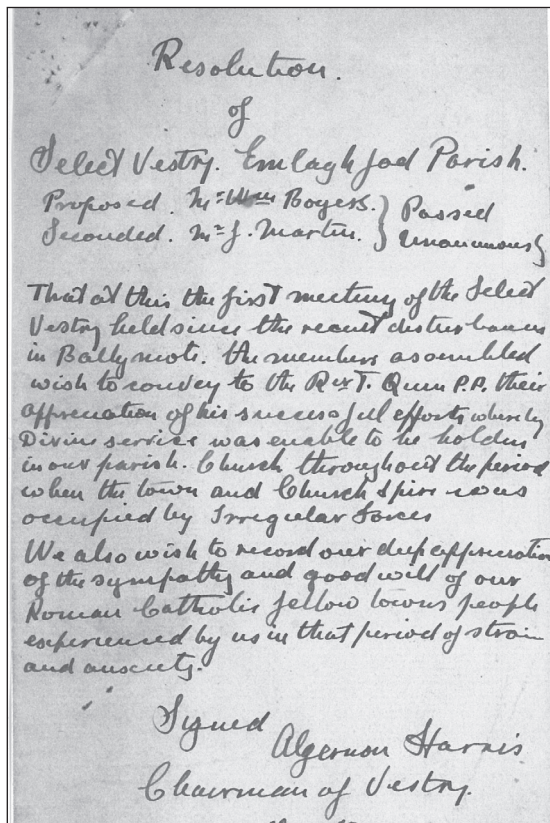 Resolution.
of
Select Vestry. Emlaghfad Parish.
Proposed. Mr Wm Bogers. } Passed
Seconded. Mr J. Martin. } Unanimously
That at this the first meeting of the Select
Vestry held since the recent disturbances
in Ballymote. the members assembled
wish to convey to the Rev T. Quinn P.P. their
appreciation of his successful efforts whereby
Divine service was enable to be holden
in our parish. Church throughout the period
when the town and Church Spire was
occupied by Irregular Forces
We also wish to record our deep appreciation
of the sympathy and good will of our
Roman Catholic fellow towns people
experienced by us in that period of strain
and anxiety.
Signed
Algernon Harris
Chairman of Vestry.